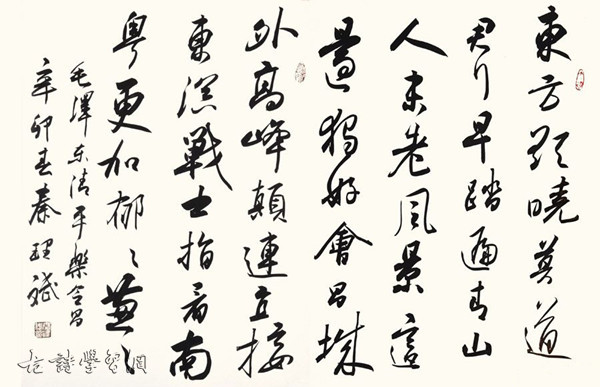 東方欲曉莫道
君行早踏遍青山
人未老風景這
邊獨好會昌城
外高峰顛連直接
東溟戰士指看南
粤更加郁〻葱〻
毛澤东清平樂会昌
辛卯春秦理斌
詩學習網